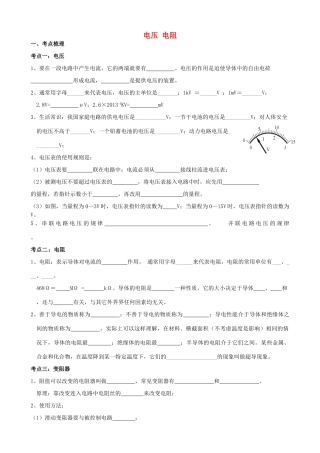 电压 电阻
一、考点梳理
考点一：电压
1、要在一段电路中产生电流，它的两端就要有________，电压的作用是迫使导体中的自由电荷
________形成电流，________是提供电压的装置。
2、通常用字母______来代表电压；电压的主单位是________；1kV = ______V ；1mV= ______V；
2.8V=________μV；2.6×2013⁶mV= ________V
3、生活常识：我国家庭电路的供电电压是________V；一节干电池的电压是______V；对人体安全
的电压不高于______V；一个铅蓄电池的电压是______V；动力电路电压是______V
4、电压表的使用规则是：
（1）电压表要________联在电路中；电流必须从________接线柱流进电压表；
（2）被测电压不要超过电压表的________，将电压表接入电路中时，应先用________
的量程，若指针示数小于________，再改用________的量程。
（3）如图，当量程为 0—3V 时，电压表指针的读数为____V；当量程为 0—15V 时，电压表指针的读数为
V。
5、串联电路电压的规律________，并联电路电压的规律
。
考点二：电阻
1、电阻：表示导体对电流的________作用。 通常用字母______来代表电阻，电阻的常用单位有___、_
__、____。
468Ω = ____ MΩ =______ kΩ。导体的电阻是________一种性质，它的大小决定于导体____、____和____
____，还与____有关；与其它外界外任何因素均无关。
2、善于导电的物质称为________；不善于导电的物质称为________，导电能力介于导体与绝缘体之
间的物质称为________，实际上可以这样理解，在材料、横截面积（不考虑温度是影响）相同的情
况下，导体的电阻最________，绝缘体的电阻最________，半导体的电阻介于二者之间。某些金属、
合金和化合物，在温度降到某一特定温度下，它们的________的现象叫做超导现象。
考点三：变阻器
1、阻值可以改变的电阻器叫做________，常见变阻器有________和________。
原理：靠改变连入电路中电阻丝的________来改变电阻；
2、使用方法：
（1）滑动变阻器与被控制电路________；